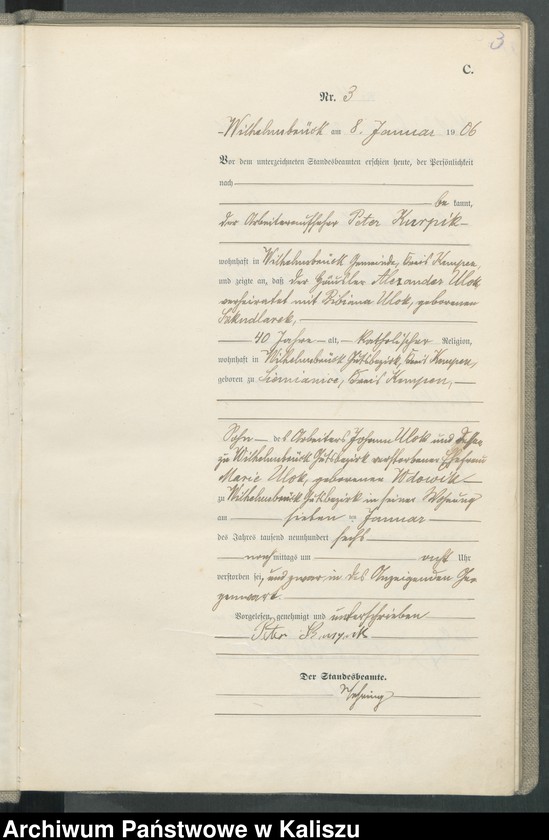 3
C.
Nr. 3
Wilhelmsbrück am 8. Januar 1906
Vor dem unterzeichneten Standesbeamten erschien heute, der Persönlichkeit
nach
be kannt,
der Arbeiteraufseher Peter Kurpik
wohnhaft in Wilhelmsbrück Gemeinde, Kreis Kempen,
und zeigte an, daß der Häusler Alexander Ulok
verheiratet mit Bibiana Ulok, geborenen
40 Jahre alt, katholischer Religion,
wohnhaft in Wilhelmsbrück Gutsbezirk, Kreis Kempen,
geboren zu Siemianice, Kreis Kempen,
Sohn des Arbeiters Johann Ulok und dessen
zu Wilhelmsbrück Gutsbezirk verstorbener Ehefrau
Marie Ulok, geborenen Wdowik
zu Wilhelmsbrück Gutsbezirk in seiner Wohnung
am sieben ten Januar
des Jahres tausend neunhundert sechs
nach mittags um acht Uhr
verstorben sei, und zwar in des Anzeigenden Ge-
genwart.
Vorgelesen, genehmigt und unterschrieben
Peter Kurpik
Der Standesbeamte.
Archiwum Państwowe w Kaliszu